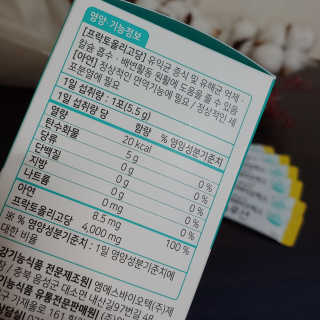 영양·기능정보
[프락토올리고당] 유익균 증식 및 유해균 억제·
칼슘 흡수·배변활동 원활에 도움을 줄 수 있음
[아연] 정상적인 면역기능에 필요 / 정상적인 세
포분열에 필요
1일 섭취량 : 1포(5.5 g)
1일 섭취량 당 함량 % 영양성분기준치
열량 20 kcal
탄수화물 5 g
당류 0 g 0 %
단백질 0 g 0 %
지방 0 g 0 %
나트륨 0 mg 0 %
아연 8.5 mg 100 %
프락토올리고당 4,000 mg
※ % 영양성분기준치 : 1일 영양성분기준치에
대한 비율
강기능식품 전문제조원| 엠에스바이오텍(주)제
충북 음성군 대소면 내산길97번길 48
기능식품 유통전문판매원|
구 가재울로 161